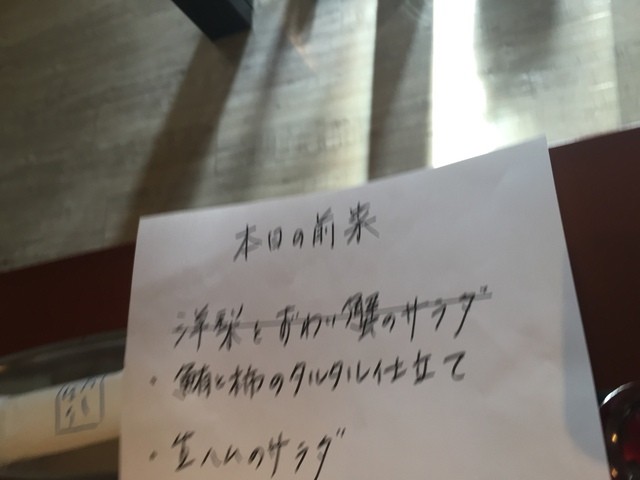 本日の前菜
洋梨とずわい蟹のサラダ
・鮪と柿のタルタル仕立て
・生ハムのサラダ